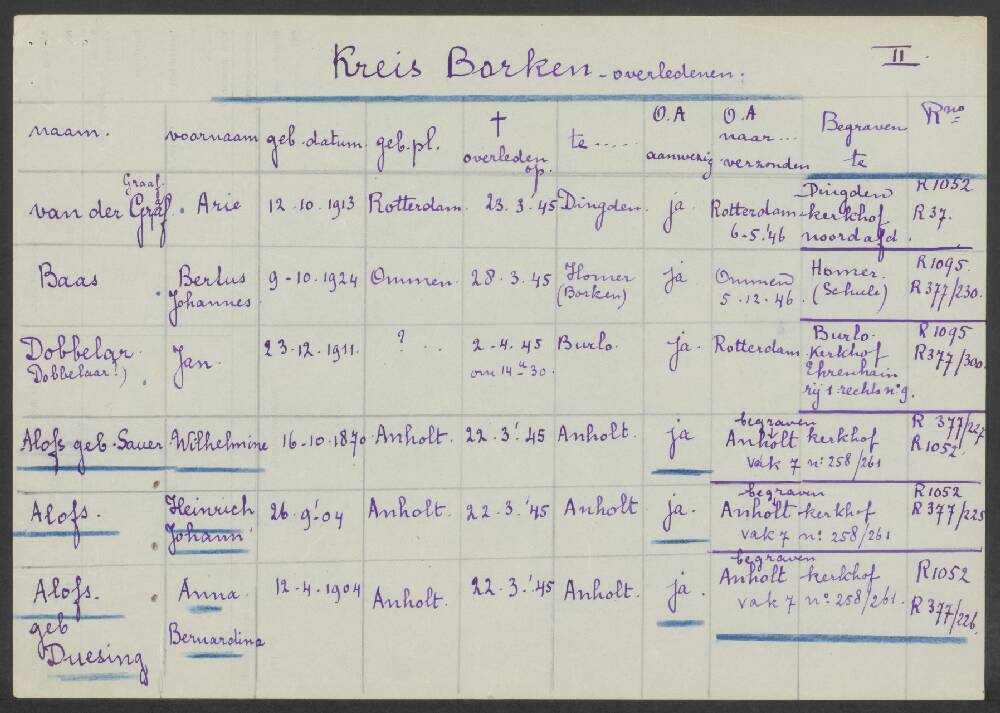 Kreis Borken - overledenen.
II.
naam. voornaam geb. datum. geb. pl. † overleden op. te ..... O.A aanwezig O.A naar... verzonden Begraven te Rno
van der Gráf. Graaf. Arie 12.10.1913 Rotterdam. 23.3.'45 Dingden. ja Rotterdam 6-5.'46 Dingden kerkhof noord afd. R1052 R37.
Baas Bertus Johannes 9-10.1924 Ommen. 28.3.45 Homer (Borken) ja Ommen 5.12.'46. Homer. (Schule) R1095. R377/230.
Dobbelar. Dobbelaar?) Jan. 23.12.1911. ? .. 2-4.45 om 14 u 30. Burlo. ja. Rotterdam. Burlo. kerkhof Ehrenhain rij 1 rechts no 9. R1095 R377/300.
Alofs geb. Sauer Wilhelmine 16-10.1870 Anholt. 22.3.'45 Anholt. ja begraven Anholt kerkhof vak 7 no 258/261 R 377/227 R1052.
Alofs. Heinrich Johann 26.9.'04 Anholt. 22.3.'45 Anholt ja. begraven Anholt kerkhof vak 7 no 258/261 R1052 R377/225
Alofs. geb Duesing Anna. Bernardina 12-4.1904 Anholt. 22.3.'45 Anholt. ja. begraven Anholt kerkhof vak 7 no 258/261. R1052 R377/226.